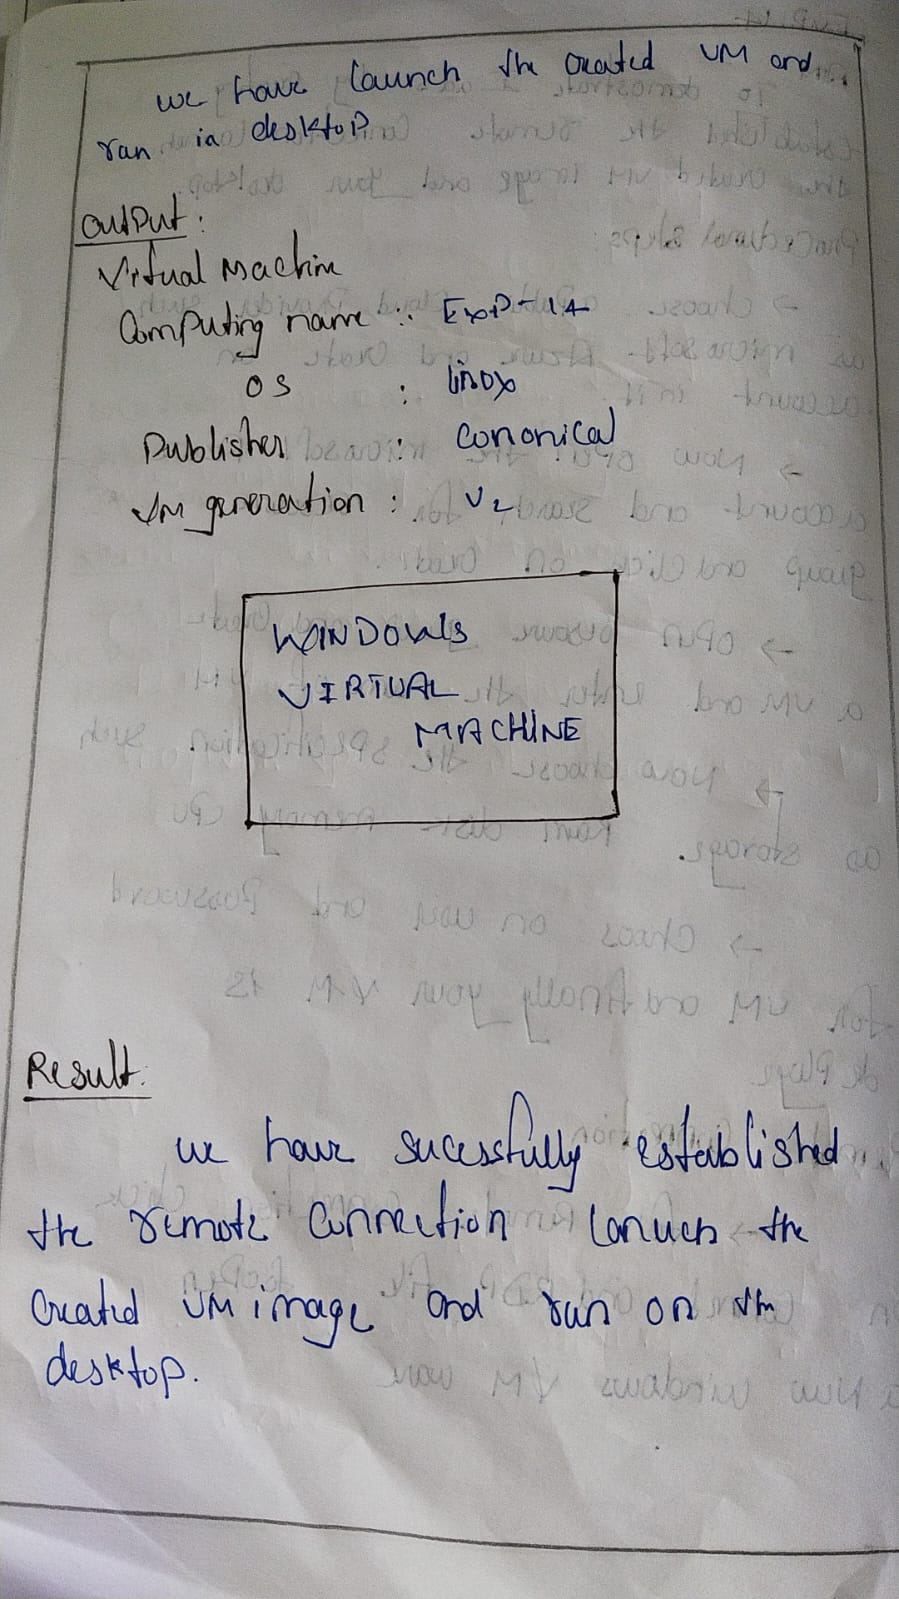 we have launch the created VM and
ran in desktop
Output:
Virtual Machine
Computing name : ExP-14
OS : linox
Publisher : Cononical
VM generation : V2
WINDOWS
VIRTUAL
MACHINE
Result:
we have sucessfully established
the remote connection lanuch the
Created VM image and run on the
desktop.